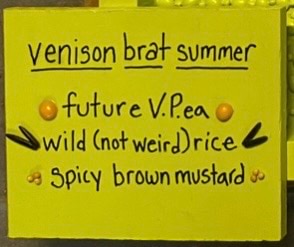 venison brat summer
future V.P.ea
wild (not weird) rice
spicy brown mustard